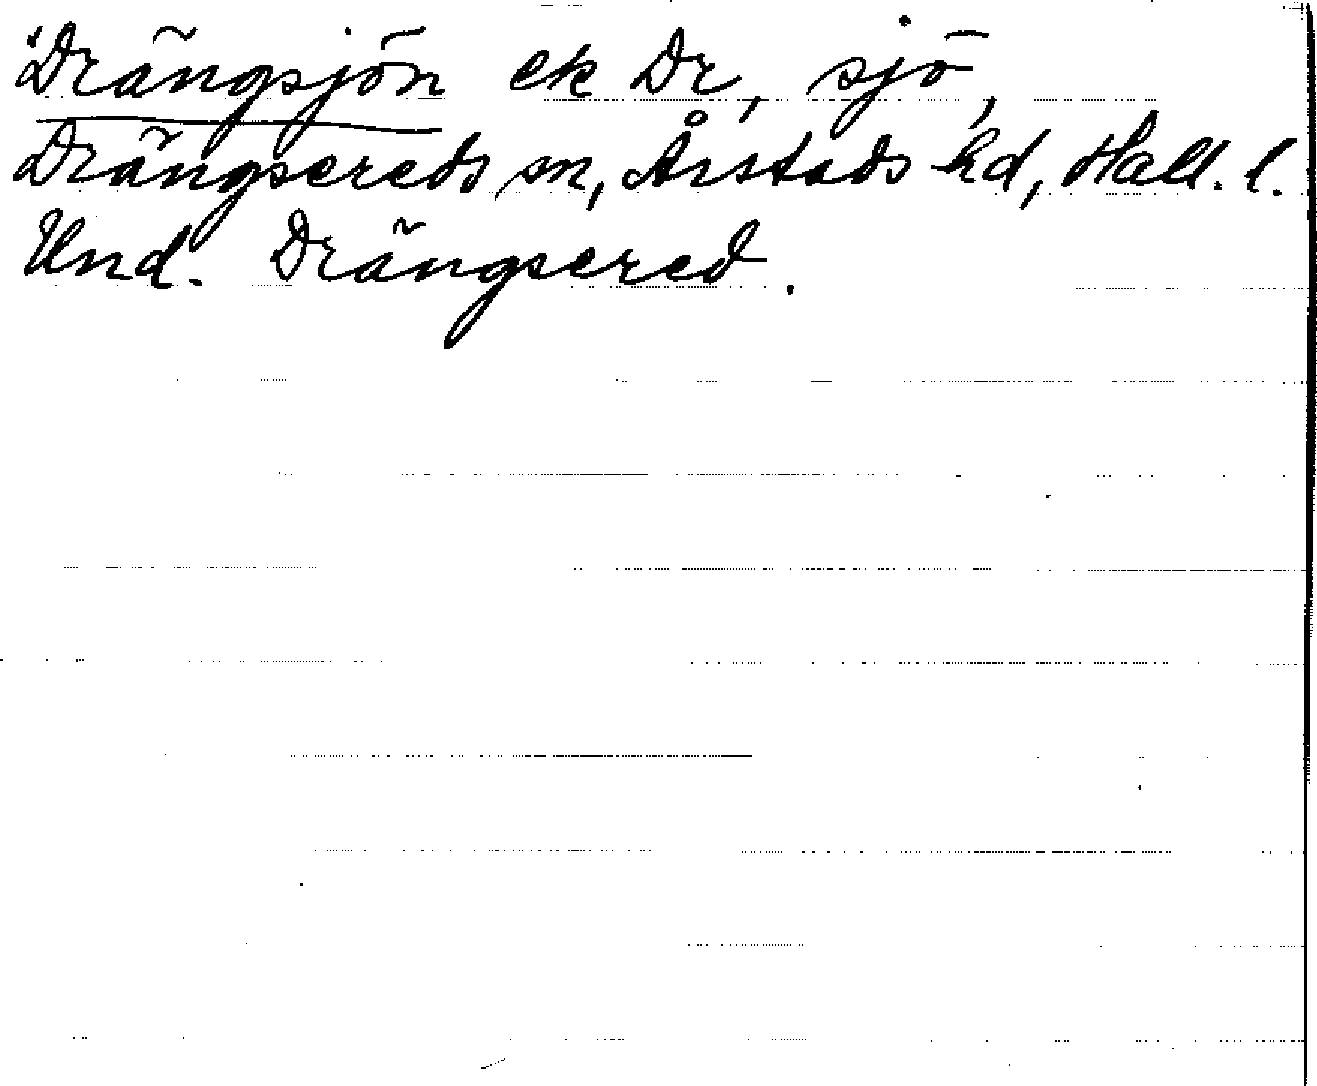 Drängsjön ek Dr, sjö,
Drängsereds sn, Årstads hd, Hall. l.
Und. Drängsered.